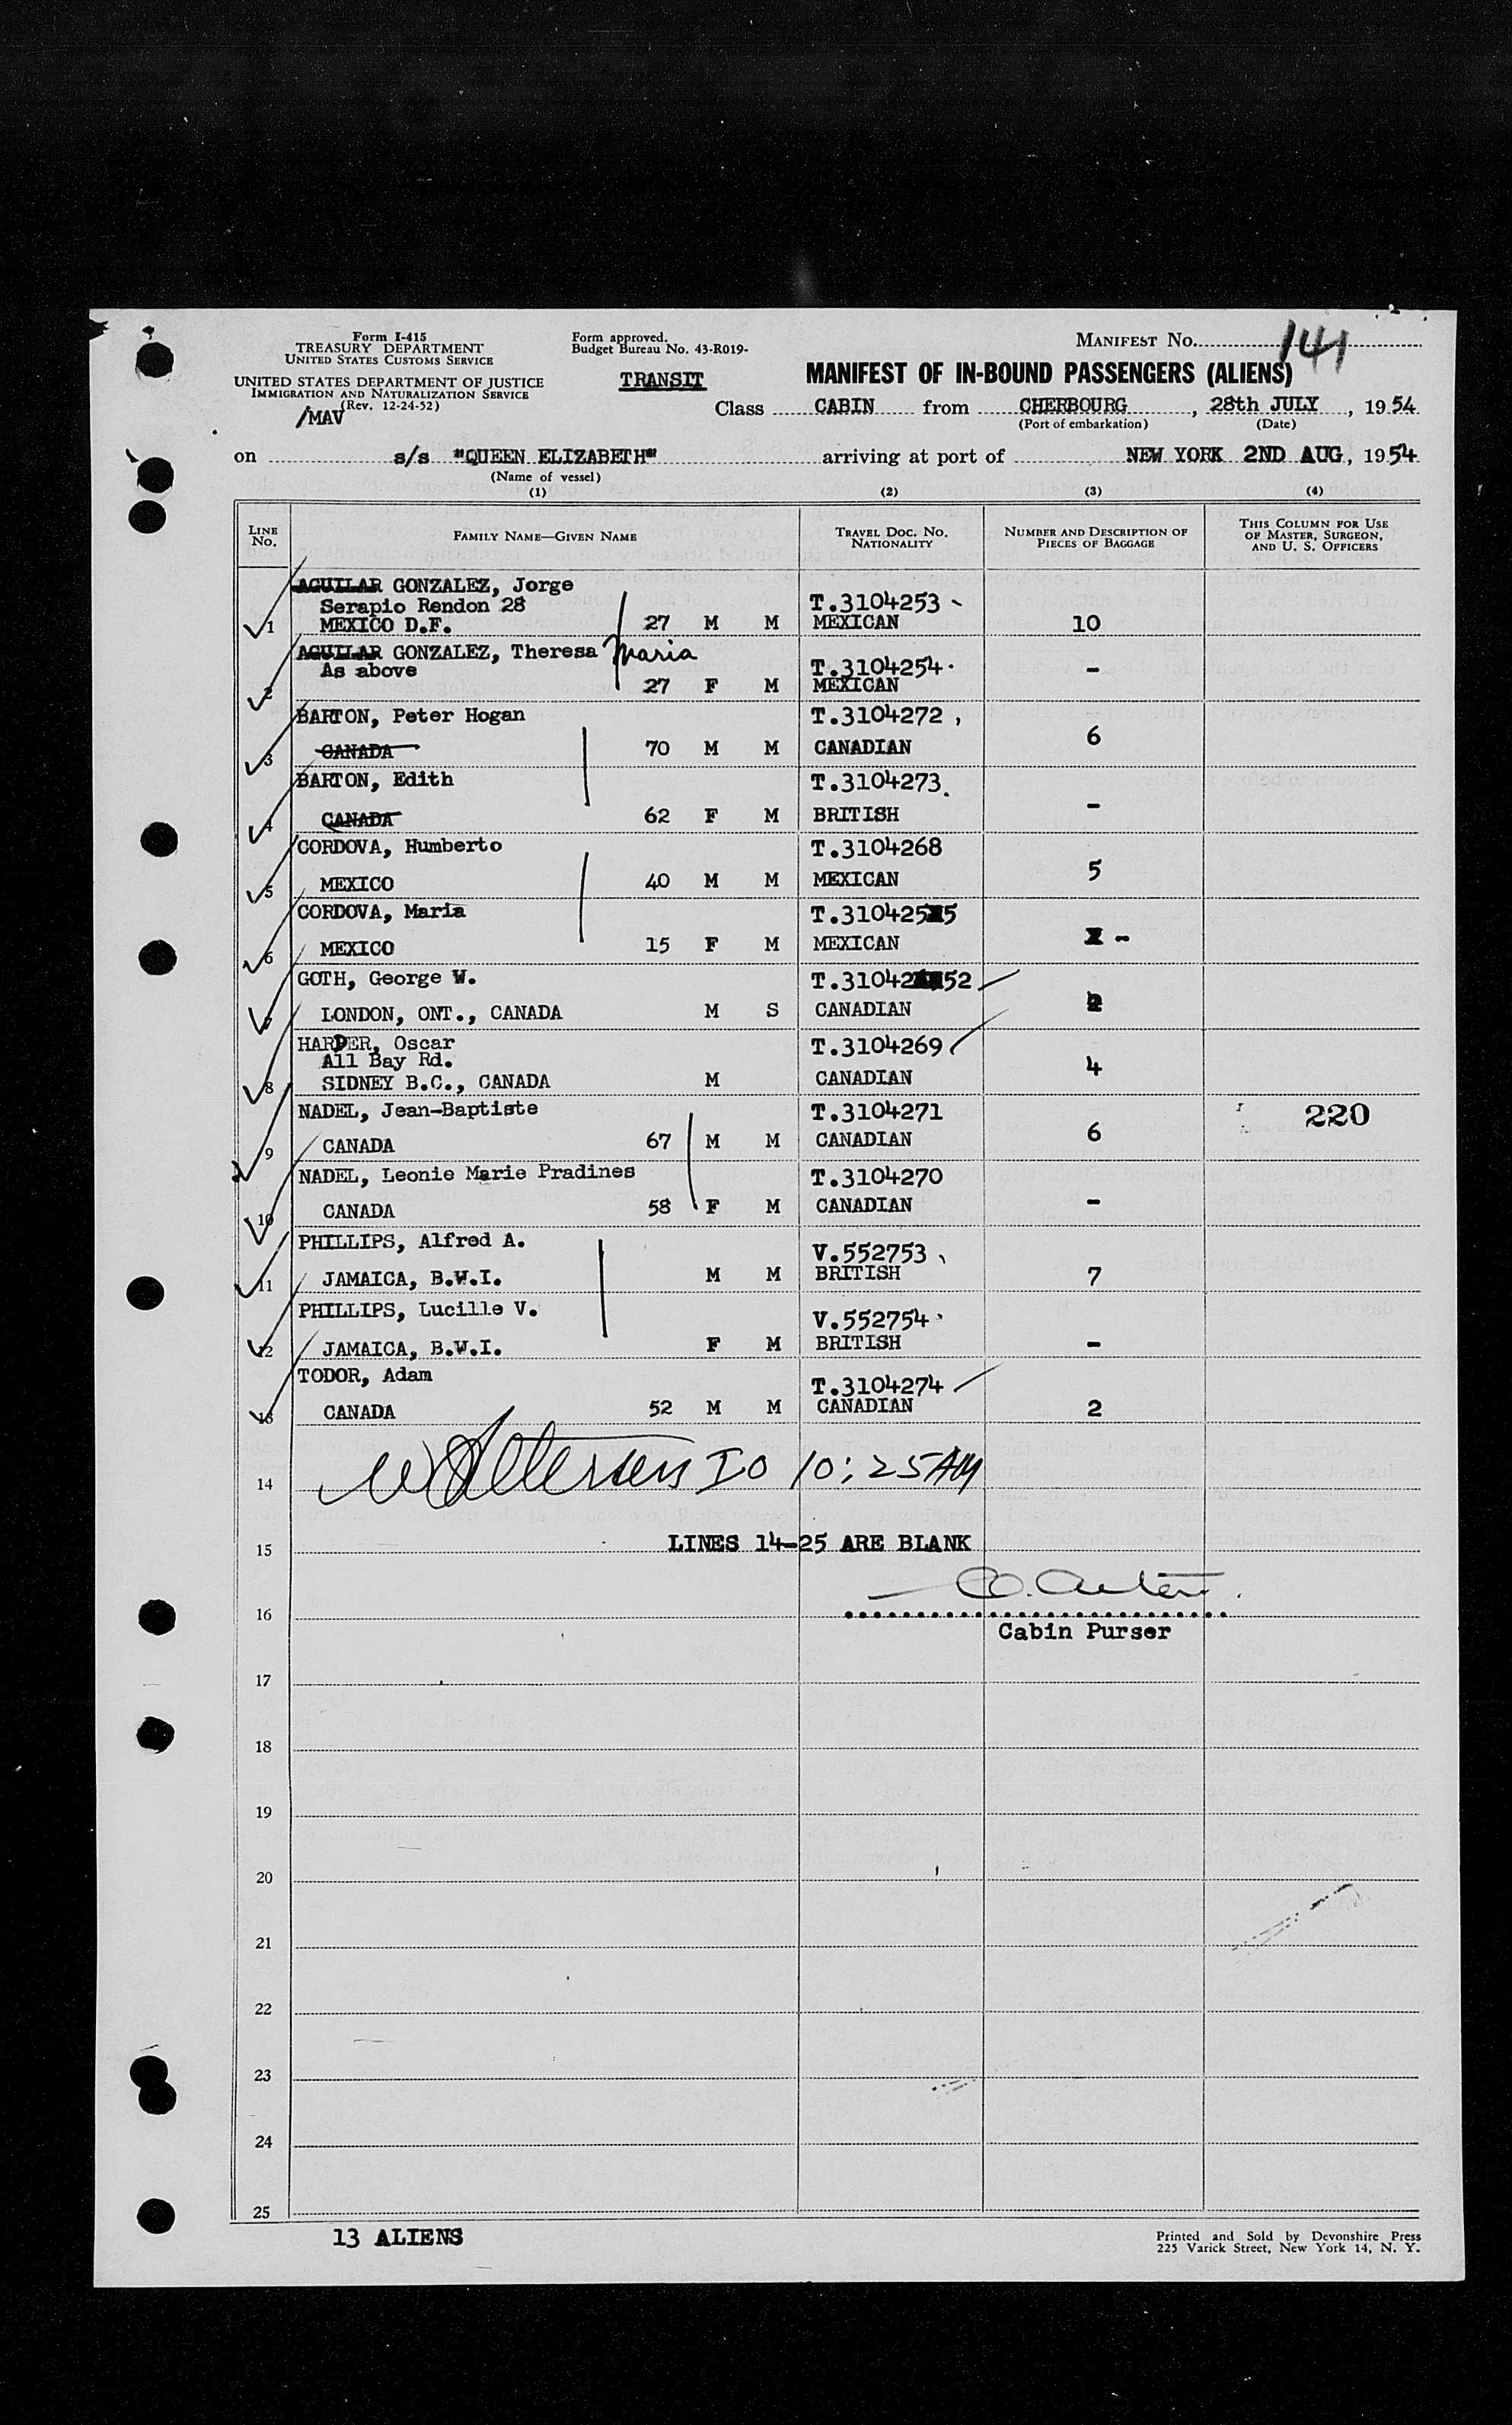 Form I-415
TREASURY DEPARTMENT
UNITED STATES CUSTOMS SERVICE
UNITED STATES DEPARTMENT OF JUSTICE
IMMIGRATION AND NATURALIZATION SERVICE
(Rev. 12-24-52)
/MAV
Form approved.
Budget Bureau No. 43-R019-
TRANSIT
MANIFEST No. 141
MANIFEST OF IN-BOUND PASSENGERS (ALIENS)
Class CABIN from CHERBOURG, 28th JULY, 1954
(Port of embarkation) (Date)
on s/s "QUEEN ELIZABETH" arriving at port of NEW YORK 2ND AUG, 1954
(Name of vessel)
(1) (2) (3) (4)
LINE No. FAMILY NAME—GIVEN NAME TRAVEL DOC. No. NATIONALITY NUMBER AND DESCRIPTION OF PIECES OF BAGGAGE THIS COLUMN FOR USE OF MASTER, SURGEON, AND U. S. OFFICERS
AGUILAR GONZALEZ, Jorge
Serapio Rendon 28 T.3104253
1 MEXICO D.F. 27 M M MEXICAN 10
AGUILAR GONZALEZ, Theresa Maria
As above T.3104254 -
2 27 F M MEXICAN
BARTON, Peter Hogan T.3104272
3 CANADA 70 M M CANADIAN 6
BARTON, Edith T.3104273
4 CANADA 62 F M BRITISH -
CORDOVA, Humberto T.3104268
5 MEXICO 40 M M MEXICAN 5
CORDOVA, Maria T.3104255
6 MEXICO 15 F M MEXICAN -
GOTH, George W. T.3104252
7 LONDON, ONT., CANADA M S CANADIAN
HARPER, Oscar T.3104269
All Bay Rd.
8 SIDNEY B.C., CANADA M CANADIAN 4
NADEL, Jean-Baptiste T.3104271 220
9 CANADA 67 M M CANADIAN 6
NADEL, Leonie Marie Pradines T.3104270
10 CANADA 58 F M CANADIAN -
PHILLIPS, Alfred A. V.552753
11 JAMAICA, B.W.I. M M BRITISH 7
PHILLIPS, Lucille V. V.552754
12 JAMAICA, B.W.I. F M BRITISH -
TODOR, Adam T.3104274
13 CANADA 52 M M CANADIAN 2
14 IO 10:25 AM
15 LINES 14-25 ARE BLANK
16
Cabin Purser
17
18
19
20
21
22
23
24
25
13 ALIENS
Printed and Sold by Devonshire Press
225 Varick Street, New York 14, N. Y.